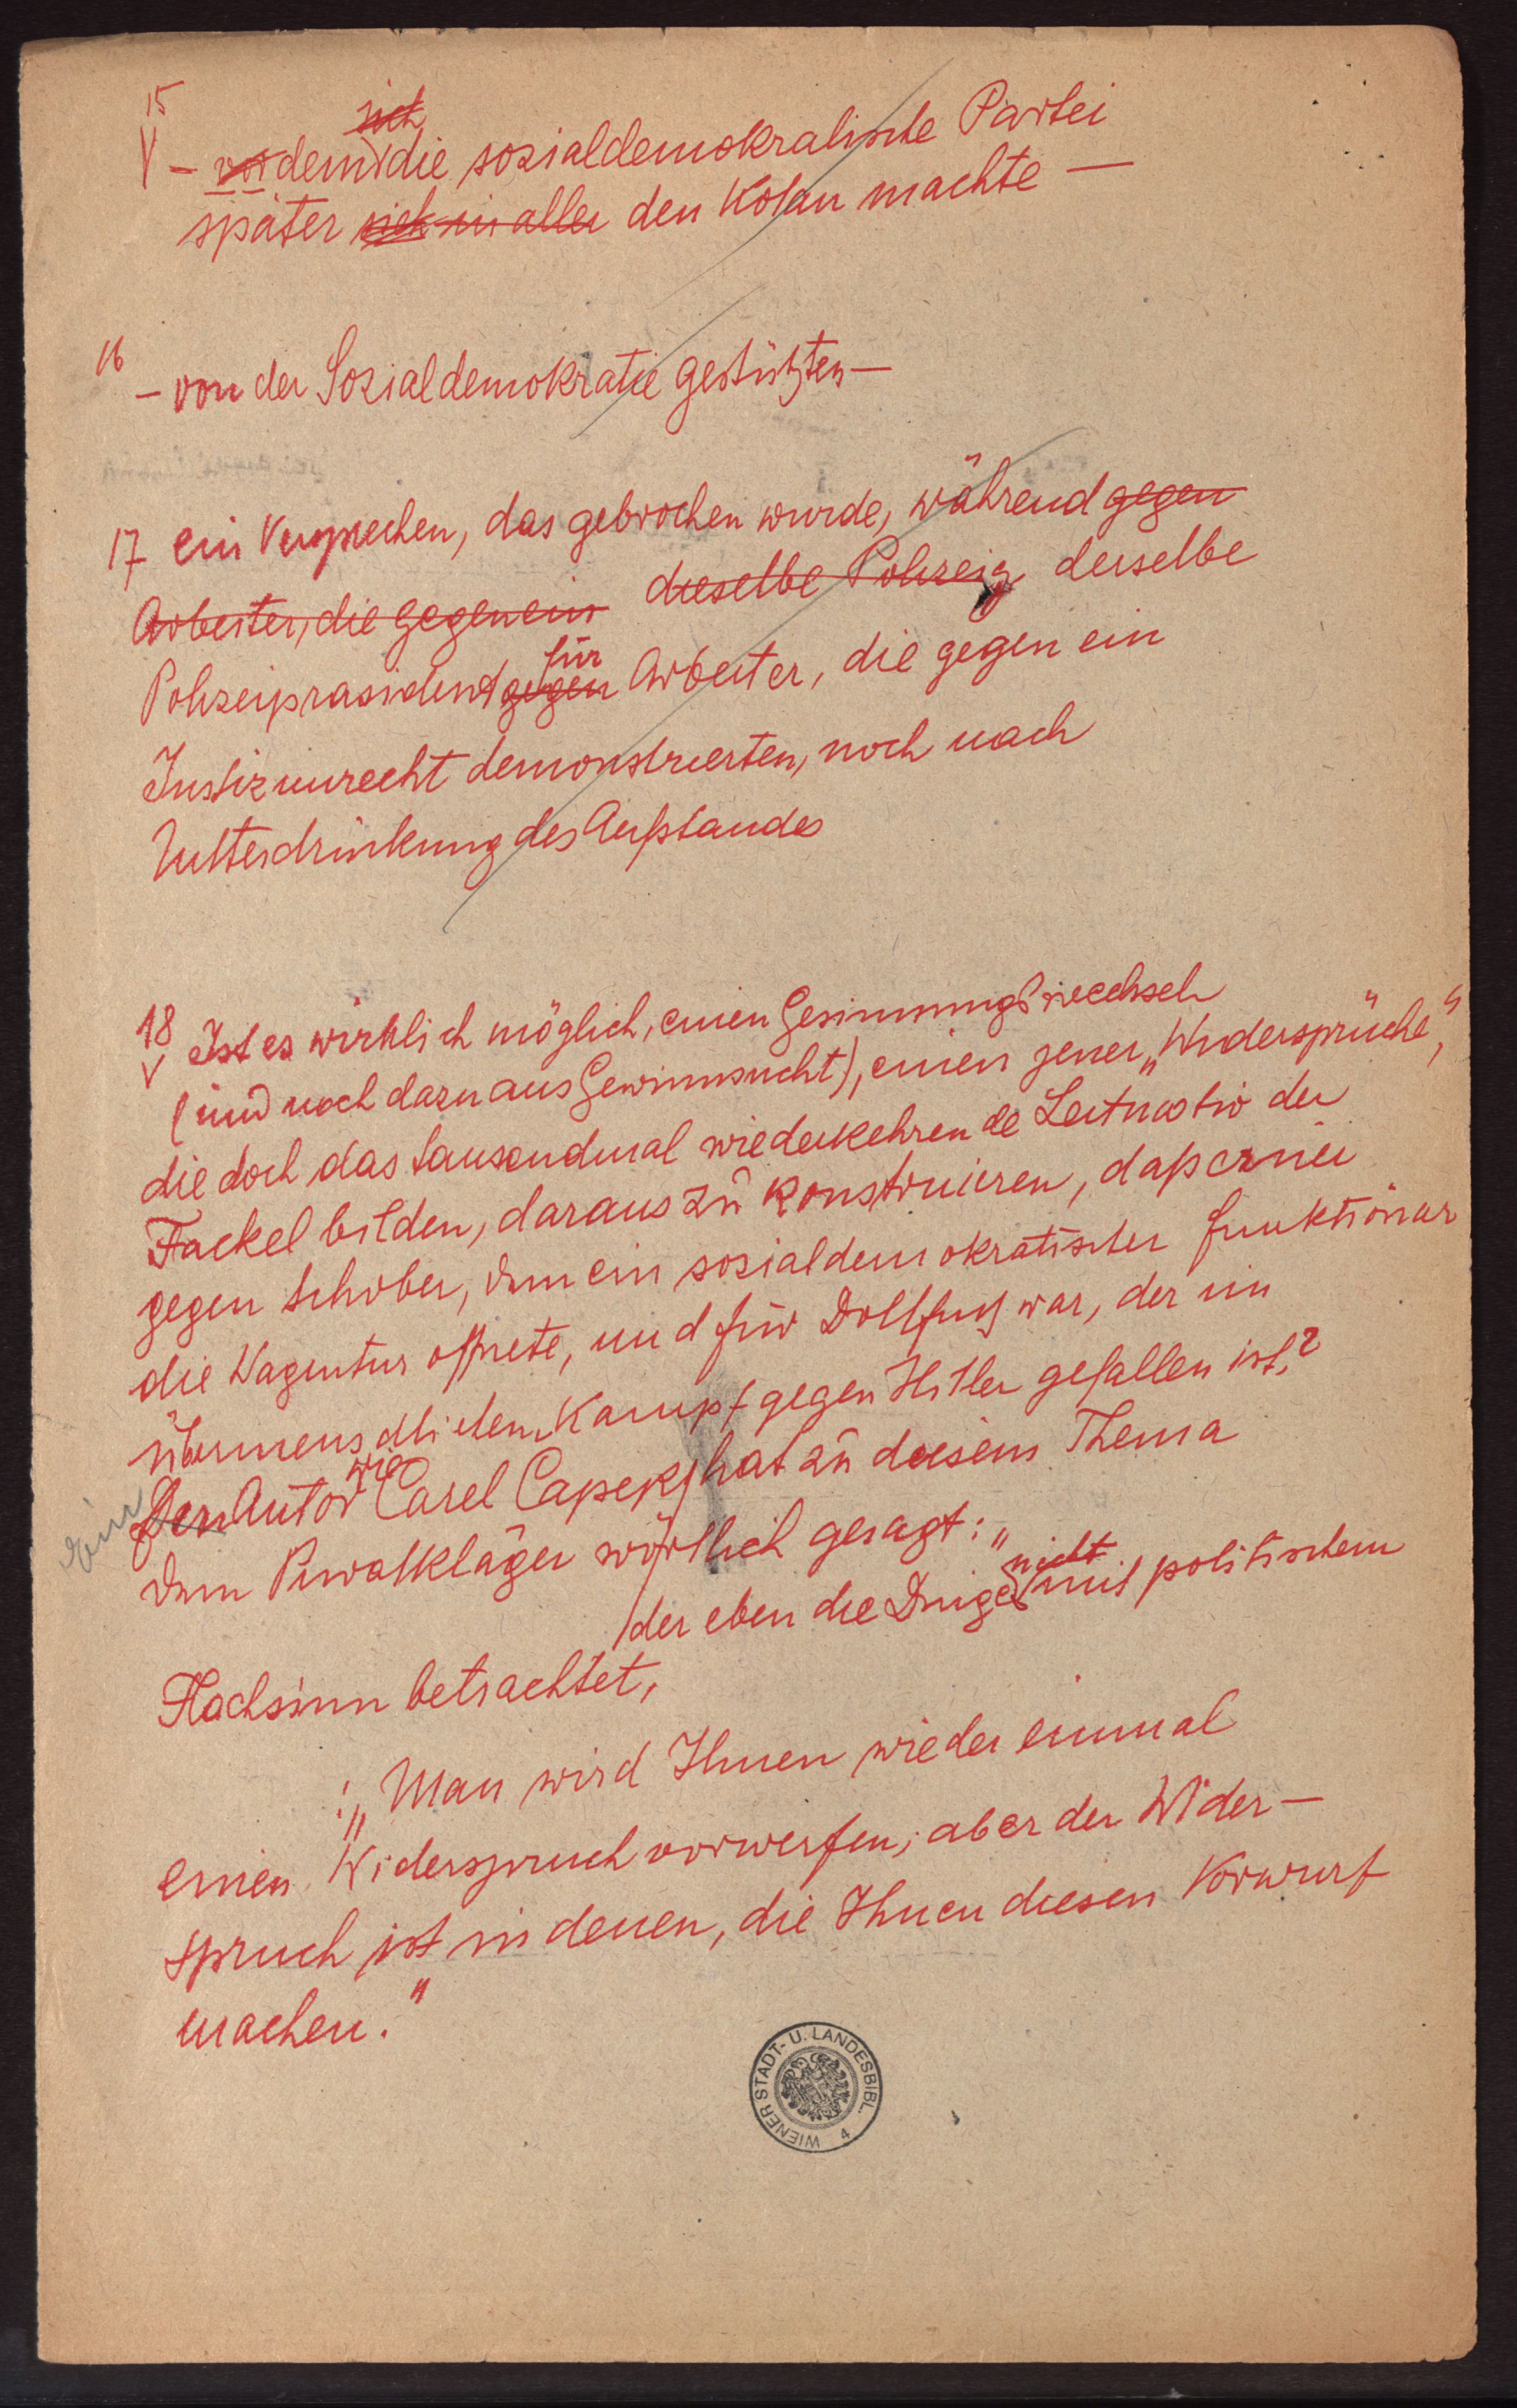 15
sich
V – vor dem die sozialdemokratische Partei
später sich in aller den Kotau machte –
16
– von der Sozialdemokratie gestützten –
17 ein Versprechen, das gebrochen wurde, während gegen
Arbeiter, die gegen ein dieselbe Polizei derselbe
für
Polizeipräsident gegen Arbeiter, die gegen ein
Justizunrecht demonstrierten, noch nach
Unterdrückung des Aufstandes
18
V Ist es wirklich möglich, einen Gesinnungswechsel
(und noch dazu aus Gewinnsucht), einen jener „Widersprüche“,
die doch das tausendmal wiederkehrende Leitmotiv der
Fackel bilden, daraus zu konstruieren, daß er nie
gegen Schober, dem ein sozialdemokratischer Funktionär
die Wagentür öffnete, und für Dollfuß war, der im
übermenschlichen Kampf gegen Hitler gefallen ist?
wie
Ein Den Autor Carel Capek, hat zu diesem Thema
dem Privatkläger wörtlich gesagt: „
nicht
der eben die Dinge mit politischem
Flachsinn betrachtet,
: „Man wird Ihnen wieder einmal
einen Widerspruch vorwerfen; aber der Wider–
spruch ist in denen, die Ihnen diesen Vorwurf
machen.“
WIENER STADT- U. LANDESBIBL.
4